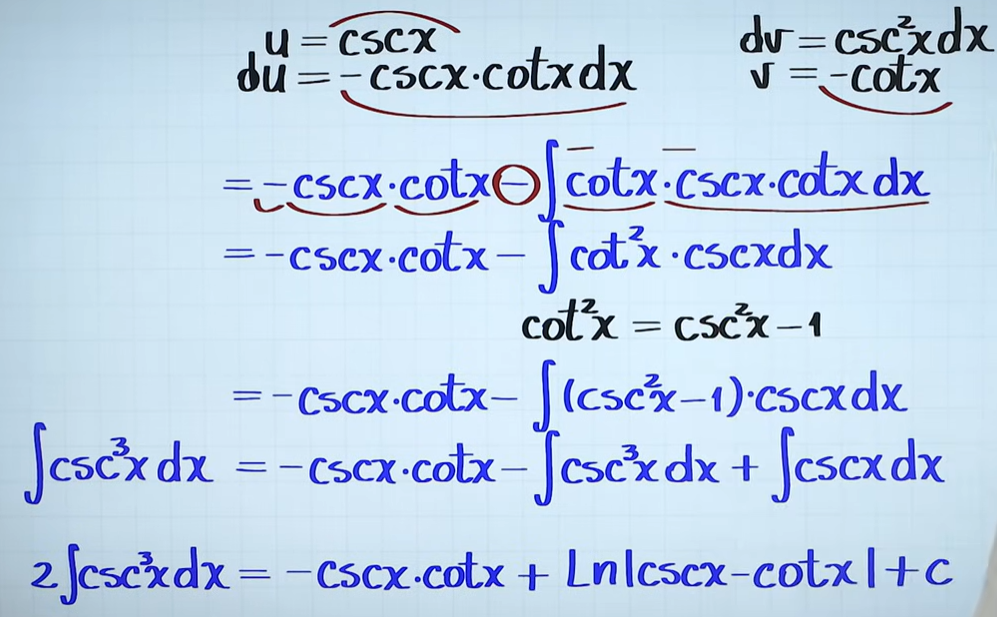 u = cscx dv = csc²xdx
du = -cscx·cotxdx v = -cotx
= -cscx·cotx - ∫cotx·cscx·cotxdx
= -cscx·cotx - ∫cot²x·cscxdx
cot²x = csc²x-1
= -cscx·cotx- ∫(csc²x-1)·cscxdx
∫csc³xdx = -cscx·cotx- ∫csc³xdx + ∫cscxdx
2∫csc³xdx = -cscx·cotx + Ln|cscx-cotx|+c